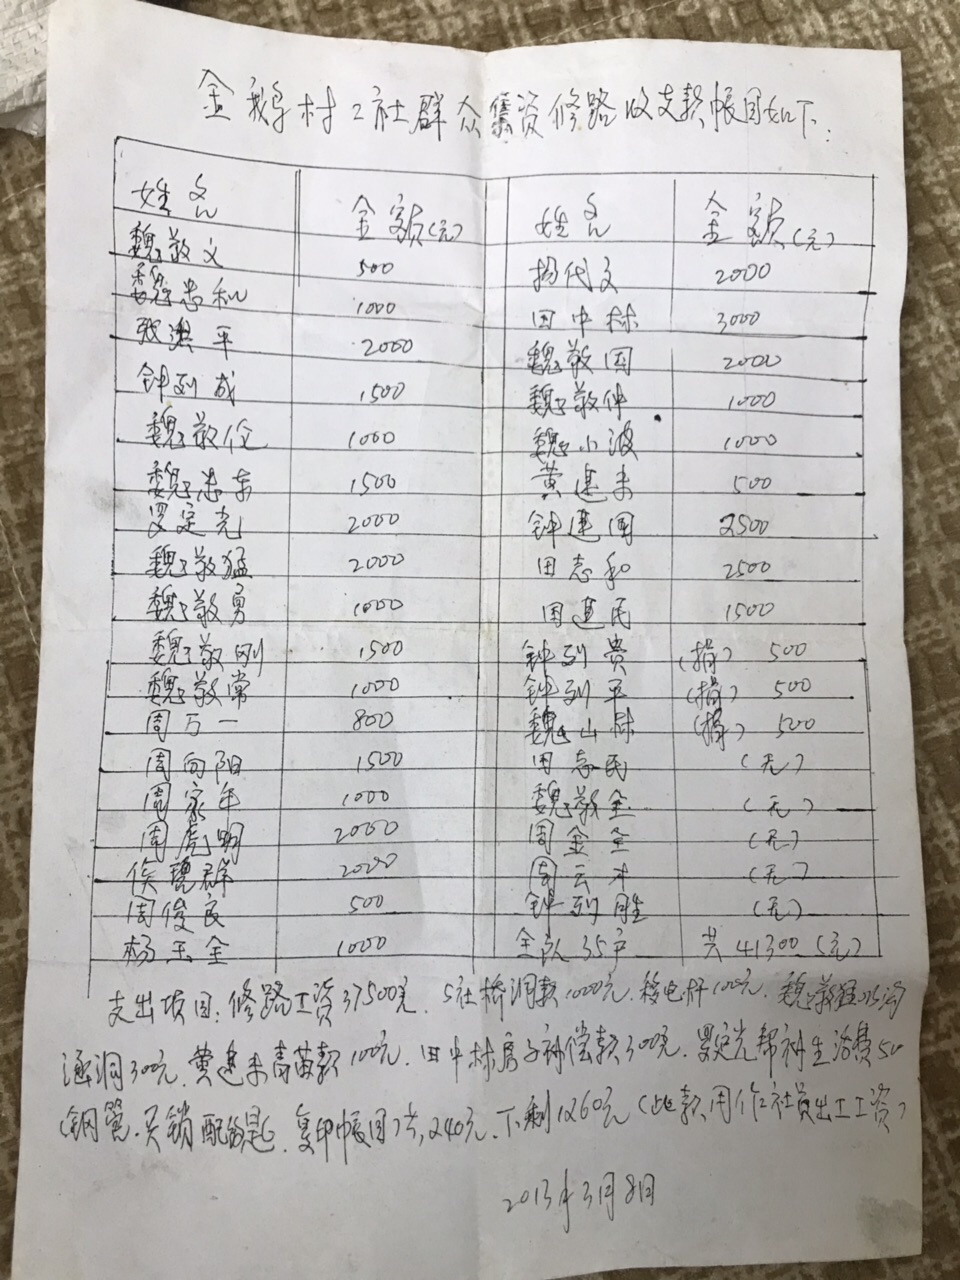 金鹅村2社群众集资修路收支款帐目如下:
姓名 金额(元) 姓名 金额(元)
魏敬文 500 杨代文 2000
魏忠和 1000 田中林 3000
张洪平 2000 魏敬国 2000
钟列成 1500 魏敬仲 1000
魏敬伦 1000 魏小波 1000
魏忠东 1500 黄建来 500
罗定光 2000 钟建国 2500
魏敬猛 2000 田志和 2500
魏敬勇 1000 田建民 1500
魏敬刚 1500 钟列贵 (捐) 500
魏敬常 1000 钟列平 (捐) 500
周万一 800 魏山林 (捐) 500
周向阳 1500 田志民 (无)
周家年 1000 魏敬全 (无)
周虎明 2000 周金全 (无)
侯琼群 2000 周云才 (无)
周俊良 500 钟列胜 (无)
杨玉金 1000 全队35户 共41300(元)
支出项目:修路工资37500元.5社桥洞款1000元.移电杆100元.魏敬猛
涵洞300元.黄建来青苗款100元.田中林房子补偿款300元.罗定光帮补生活费50
(钢筦.买锁配钥匙.复印帐目)共240元.下剩1260元(此款用作社员出工工资)
2013年3月8日